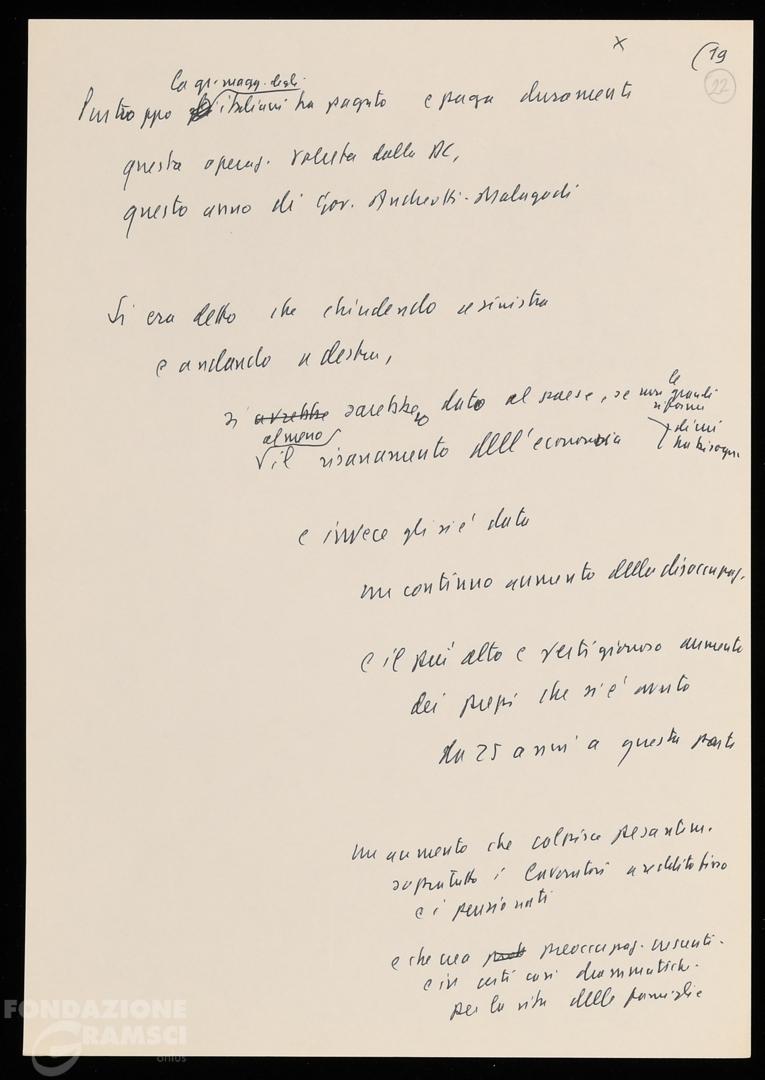 x
(19
22
la gr. magg. degli
Purtroppo italiani ha pagato e paga duramente
questa operaz. voluta dalla DC,
questo anno di Gov. Andreotti-Malagodi
Si era detto che chiudendo a sinistra
e andando a destra,
si avrebbe sarebbero dato al paese, se non le grandi riforme
di cui ha bisogno
almeno
il risanamento dell'economia
e invece gli si è dato
un continuo aumento della disoccupaz.
e il più alto e vertiginoso aumento
dei prezzi che si è avuto
da 25 anni a questa parte
un aumento che colpisce pesantem.
soprattutto i lavoratori a reddito fisso
e i pensionati
e che crea preoccupaz. crescenti
e in certi casi drammatiche
per la vita delle famiglie
FONDAZIONE
GRAMSCI
onlus